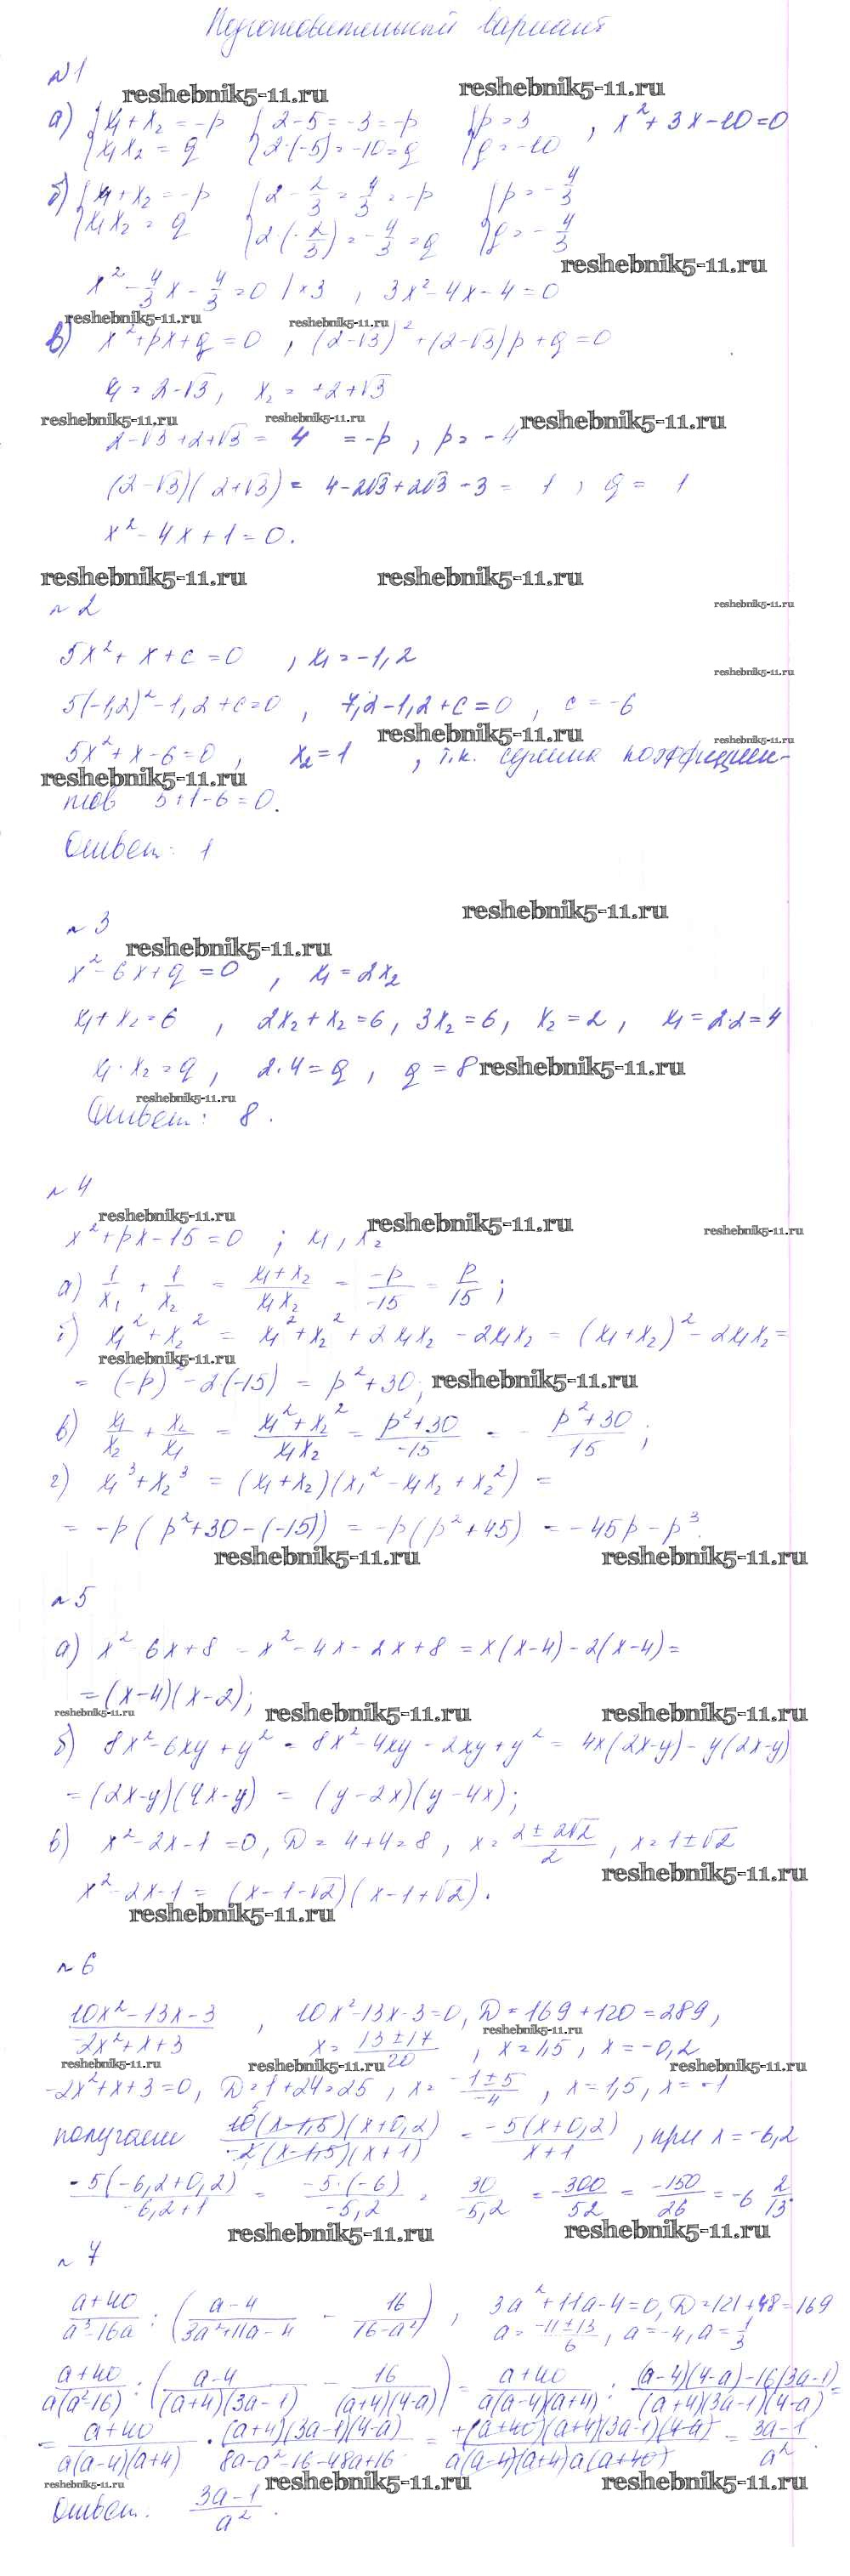 Подготовительный вариант
№1
reshebnik5-11.ru reshebnik5-11.ru
а) { x₁+x₂=-p x₁x₂=q { 2-5=-3=-p 2·(-5)=-10=q { p=3 q=-10 , x²+3x-10=0
б) { x₁+x₂=-p x₁x₂=q { 2-2/3=4/3=-p 2·(-2/3)=-4/3=q { p=-4/3 q=-4/3
reshebnik5-11.ru
x²-4/3x-4/3=0 |×3 , 3x²-4x-4=0
reshebnik5-11.ru reshebnik5-11.ru
в) x²+px+q=0 , (2-√3)²+(2-√3)p+q=0
x₁=2-√3, x₂=+2+√3
reshebnik5-11.ru reshebnik5-11.ru reshebnik5-11.ru
2-√3+2+√3= 4 =-p , p=-4
(2-√3)(2+√3)= 4-2√3+2√3-3= 1 , q= 1
x²-4x+1=0.
reshebnik5-11.ru reshebnik5-11.ru
№2 reshebnik5-11.ru
5x²+x+c=0 , x₁=-1,2
reshebnik5-11.ru
5(-1,2)²-1,2+c=0 , 7,2-1,2+c=0 , c=-6
reshebnik5-11.ru reshebnik5-11.ru
5x²+x-6=0 , x₂=1 , т.к. сумма коэффициен-
reshebnik5-11.ru
тов 5+1-6=0.
Ответ: 1
reshebnik5-11.ru
№3
reshebnik5-11.ru
x²-6x+q=0 , x₁=2x₂
x₁+x₂=6 , 2x₂+x₂=6, 3x₂=6, x₂=2, x₁=2·2=4
x₁·x₂=q, 2·4=q, q=8 reshebnik5-11.ru
reshebnik5-11.ru
Ответ: 8.
№4
reshebnik5-11.ru reshebnik5-11.ru reshebnik5-11.ru
x²+px-15=0 ; x₁, x₂
а) 1/x₁ + 1/x₂ = (x₁+x₂)/(x₁x₂) = -p/-15 = p/15 ;
б) x₁²+x₂² = x₁²+x₂²+2x₁x₂-2x₁x₂ = (x₁+x₂)²-2x₁x₂=
reshebnik5-11.ru
= (-p)²-2(-15) = p²+30; reshebnik5-11.ru
в) x₁/x₂ + x₂/x₁ = (x₁²+x₂²)/(x₁x₂) = (p²+30)/-15 = - (p²+30)/15 ;
г) x₁³+x₂³ = (x₁+x₂)(x₁²-x₁x₂+x₂²) =
= -p(p²+30-(-15)) = -p(p²+45) = -45p-p³.
reshebnik5-11.ru reshebnik5-11.ru
№5
а) x²-6x+8 = x²-4x-2x+8 = x(x-4)-2(x-4)=
=(x-4)(x-2);
reshebnik5-11.ru reshebnik5-11.ru reshebnik5-11.ru
б) 8x²-6xy+y² = 8x²-4xy-2xy+y² = 4x(2x-y)-y(2x-y)
=(2x-y)(4x-y) = (y-2x)(y-4x);
в) x²-2x-1=0, D=4+4=8, x=(2±2√2)/2 , x=1±√2
reshebnik5-11.ru
x²-2x-1= (x-1-√2)(x-1+√2).
reshebnik5-11.ru
№6
(10x²-13x-3)/(-2x²+x+3) , 10x²-13x-3=0, D=169+120=289,
reshebnik5-11.ru
x=(13±17)/20 , x=1,5, x=-0,2
reshebnik5-11.ru reshebnik5-11.ru reshebnik5-11.ru
-2x²+x+3=0, D=1+24=25 , x=(-1±5)/-4 , x=1,5, x=-1
получаем 10(x-1,5)(x+0,2)/-2(x-1,5)(x+1) = -5(x+0,2)/(x+1) , при x=-6,2
-5(-6,2+0,2)/(-6,2+1) = -5·(-6)/-5,2 = 30/-5,2 = -300/52 = -150/26 = -6 2/13.
reshebnik5-11.ru reshebnik5-11.ru
№7
(a+40)/(a³-16a) : ((a-4)/(3a²+11a-4) - 16/(16-a²)) , 3a²+11a-4=0, D=121+48=169
a=(-11±13)/6 , a=-4, a=1/3
(a+40)/(a(a²-16)) : ((a-4)/((a+4)(3a-1)) - 16/((a+4)(4-a))) = (a+40)/(a(a-4)(a+4)) : ((a-4)(4-a)-16(3a-1))/((a+4)(3a-1)(4-a)) =
= (a+40)/(a(a-4)(a+4)) · ((a+4)(3a-1)(4-a))/(8a-a²-16-48a+16) = +(a+40)(a+4)(3a-1)(4-a)/(a(a-4)(a+4)a(a+40)) = (3a-1)/a² .
reshebnik5-11.ru reshebnik5-11.ru reshebnik5-11.ru
Ответ. (3a-1)/a² .